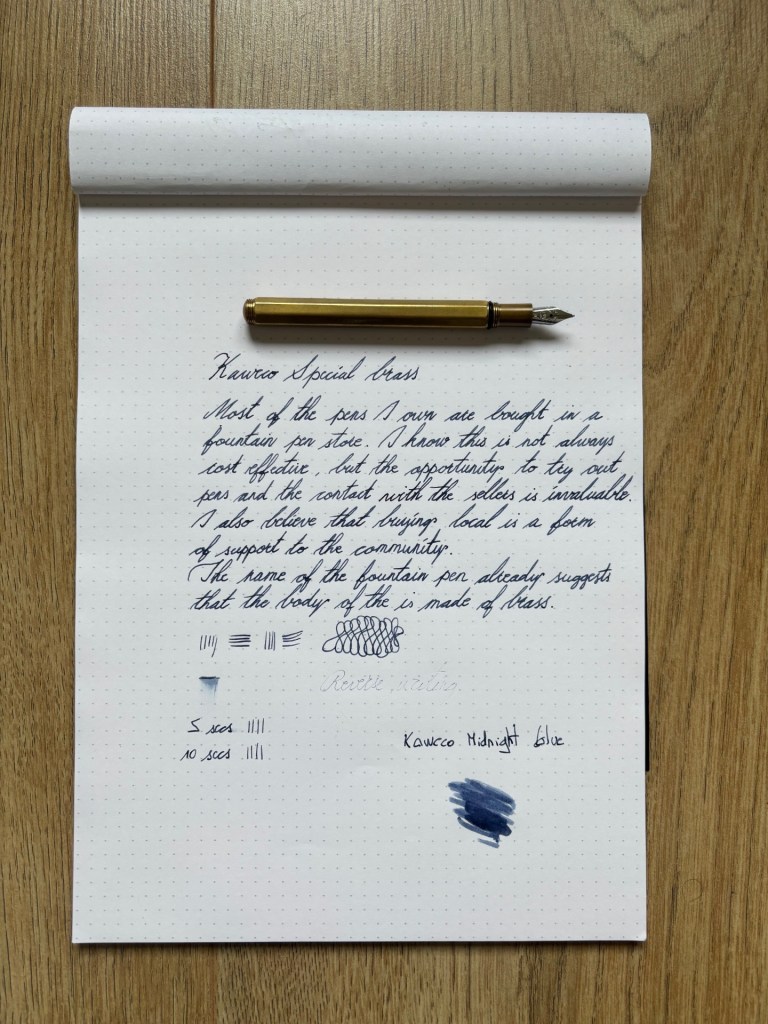 Kaweco Special brass
Most of the pens I own are bought in a
fountain pen store. I know this is not always
cost effective, but the opportunity to try out
pens and the contact with the sellers is invaluable.
I also believe that buying local is a form
of support to the community.
The name of the fountain pen already suggests
that the body of the is made of brass.
Reverse writing.
5 secs
10 secs
Kaweco Midnight blue